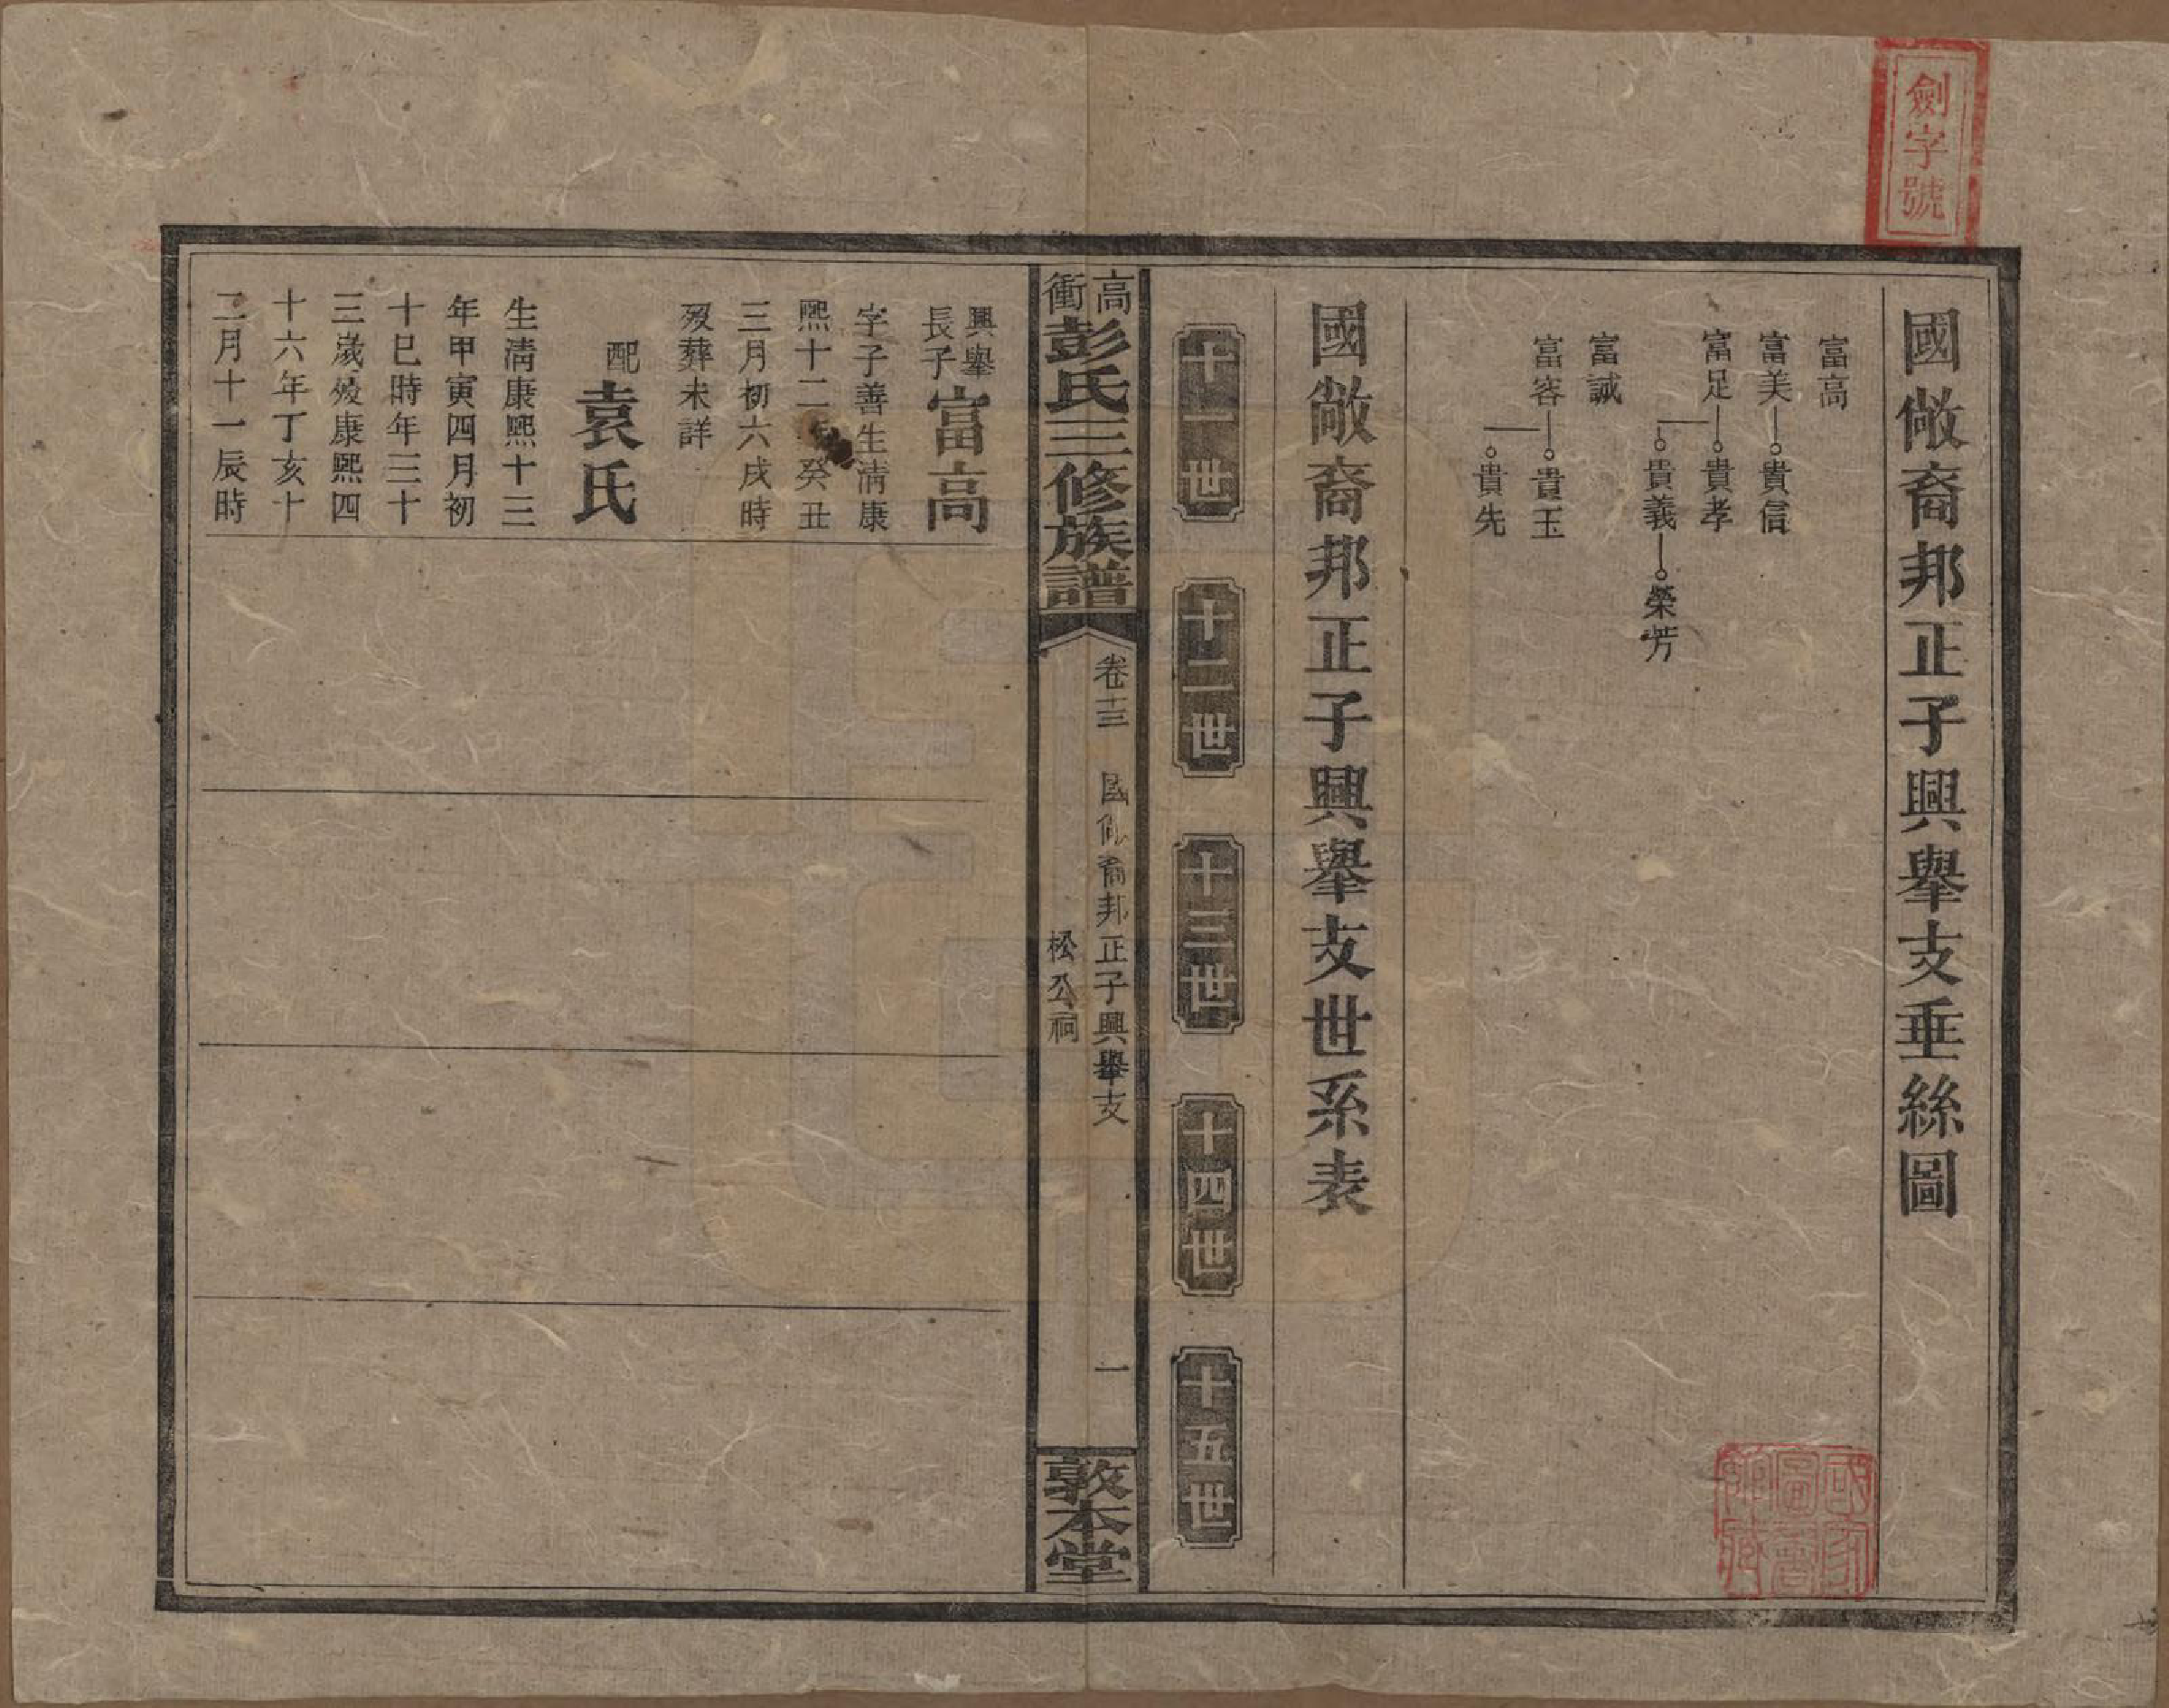 劍字號
國敞裔邦正子興舉支垂絲圖
富高
富美 貴信
富足 貴孝
貴義 榮芳
富誠
富容 貴玉
貴先
國敞裔邦正子興舉支世系表
十一世
十二世
十三世
十四世
十五世
高衝彭氏三修族譜
卷十三 國敞裔邦正子興舉支
松公祠
一
敦本堂
興舉長子富高
字子善生清康
熙十二年癸丑
三月初六戌時
歿葬未詳
配袁氏
生清康熙十三
年甲寅四月初
十巳時年三十
三歲歿康熙四
十六年丁亥十
二月十一辰時
國家圖書館藏